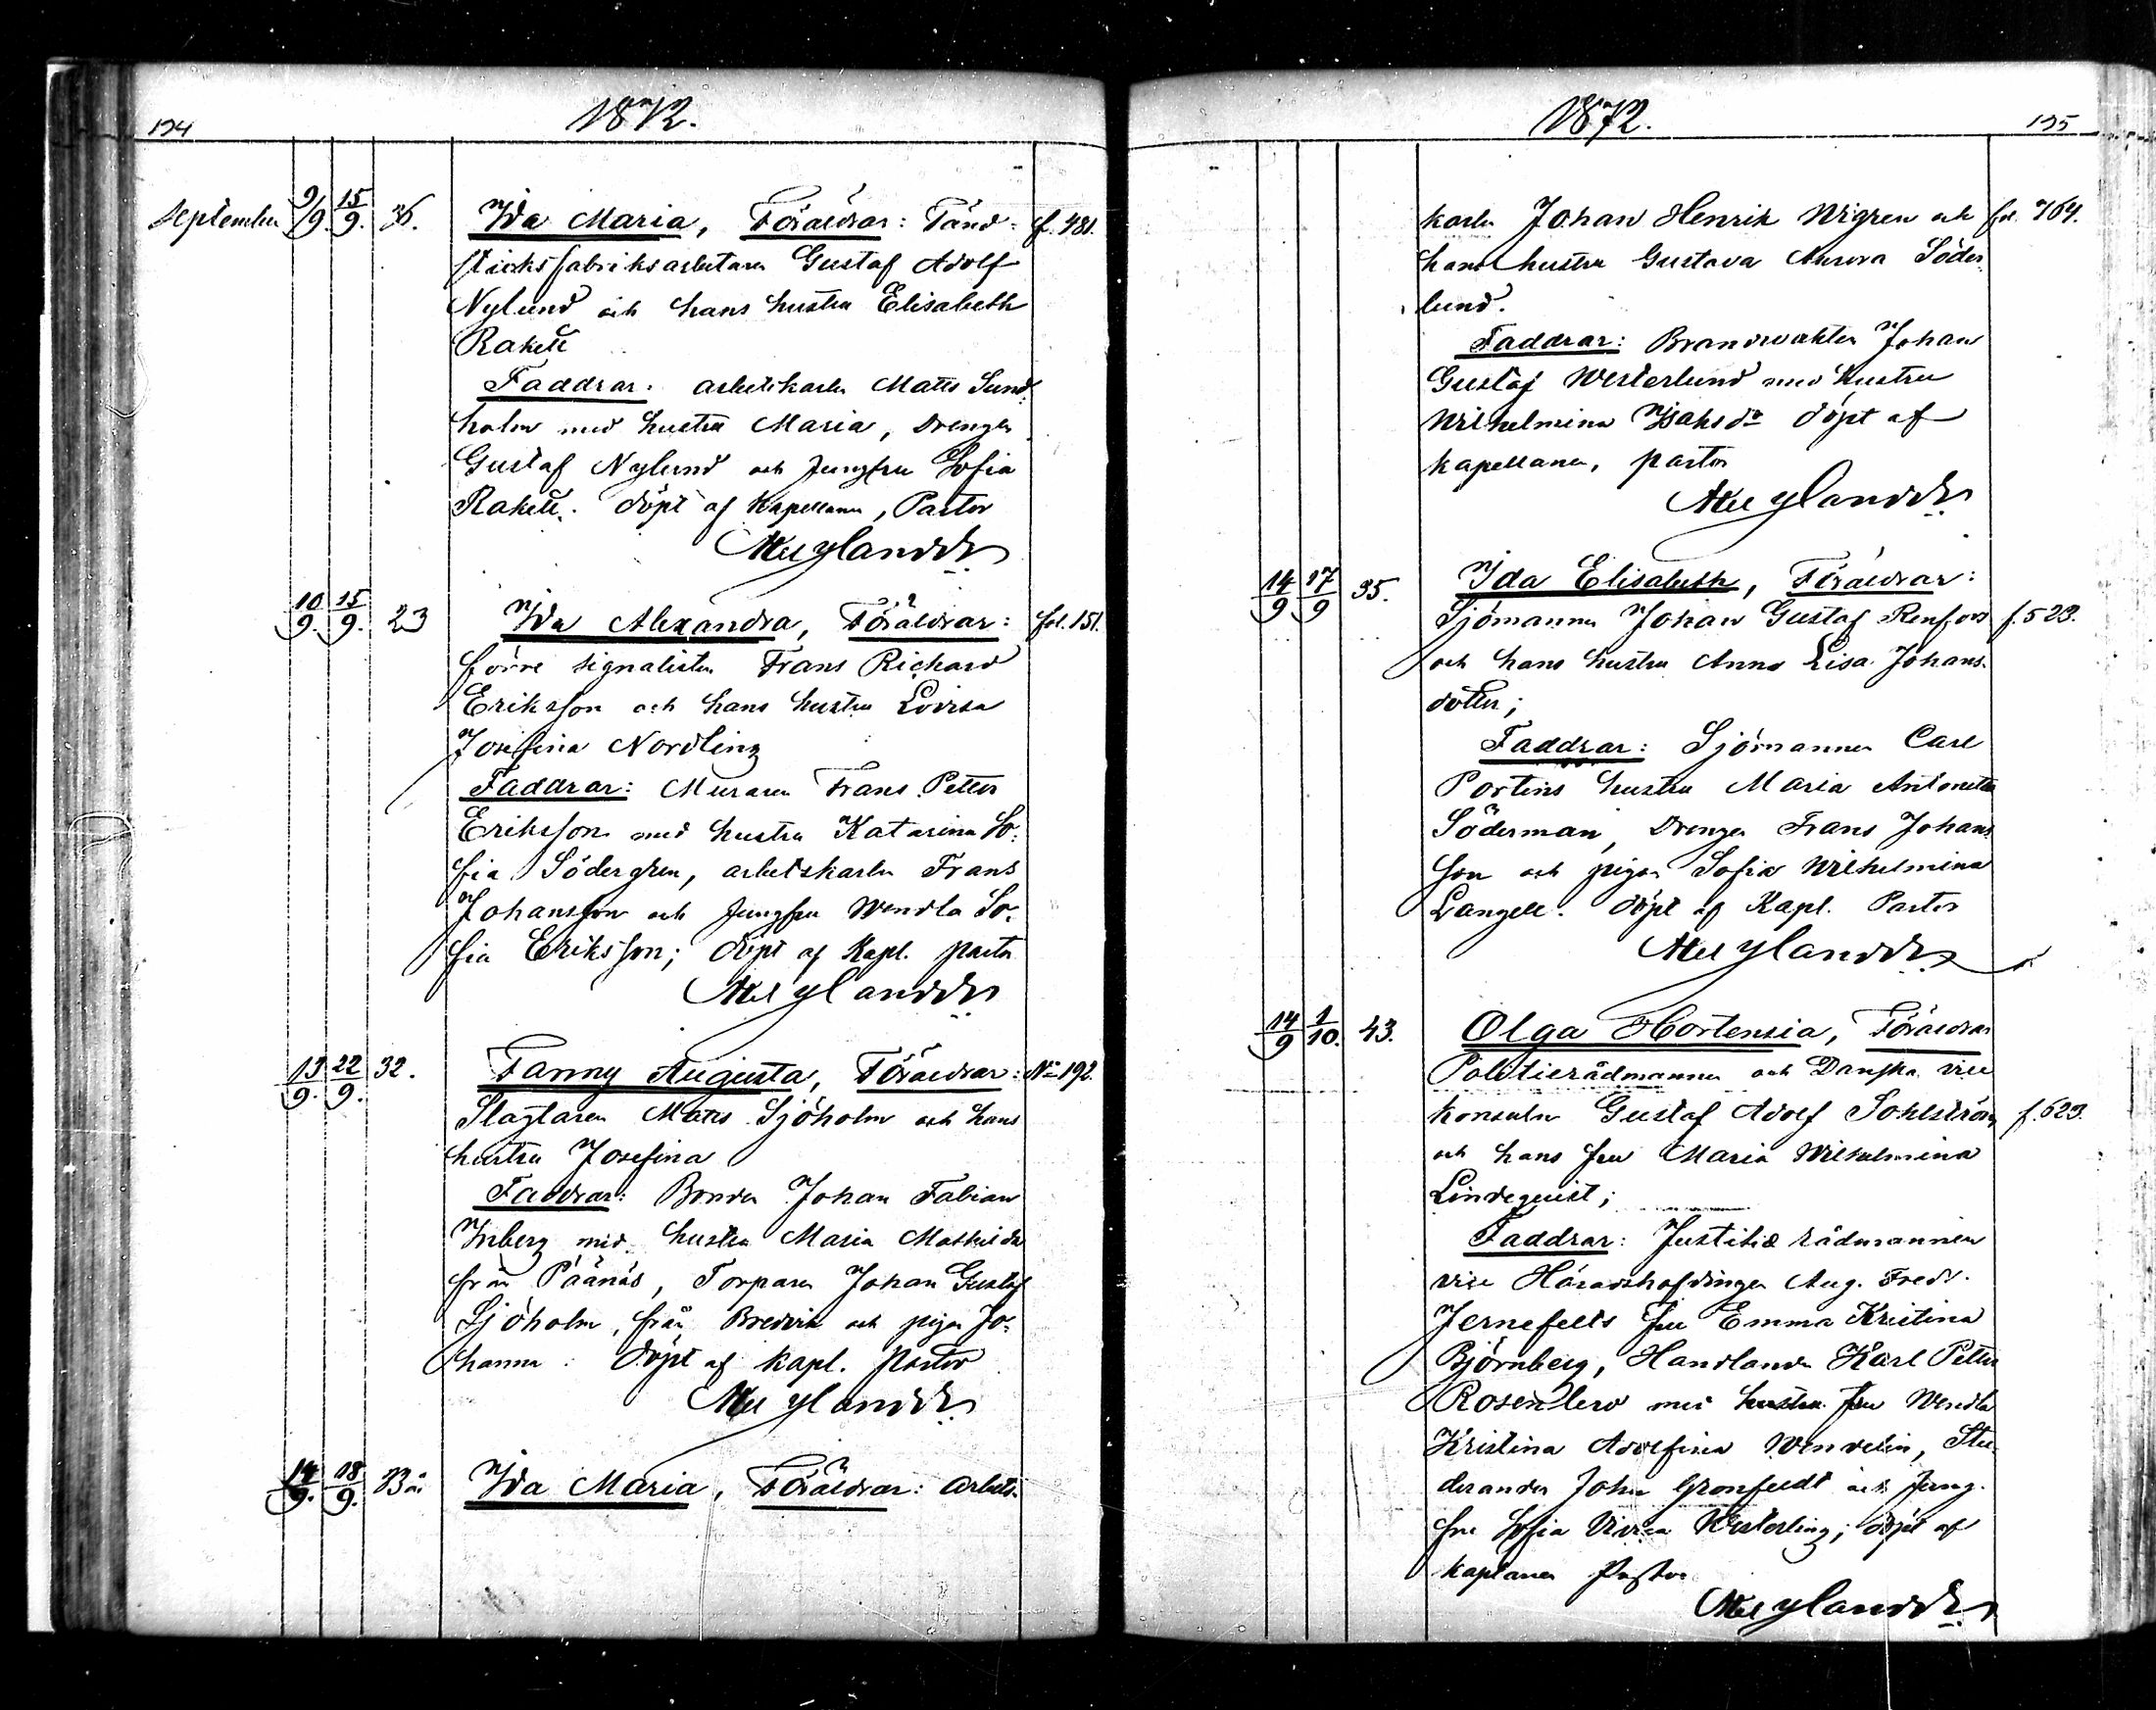 194
1872.
September 9/9. 15/9. 36. Ida Maria, Föräldrar: Tänd- f. 481.
sticksfabriksarbetaren Gustaf Adolf
Nylund och hans hustru Elisabeth
Rakell
Faddrar: arbetskarlen Matts Sund-
holm med hustru Maria, Drengen
Gustaf Nylund och Jungfru Sofia
Rakell. döpt af Kapellanen, Pastor
Nylander
10/9. 15/9. 23 Ida Alexandra, Föräldrar: fol. 151.
förre signalisten Frans Richard
Eriksson och hans hustru Lovisa
Josefina Nordling
Faddrar: Muraren Frans Petter
Eriksson med hustru Katarina So-
fia Södergren, arbetskarlen Frans
Johansson och Jungfru Wendla So-
fia Eriksson; döpt af Kapl. pastor
Nylander
13/9. 22/9. 32. Fanny Augusta, Föräldrar: No 192.
Slagtaren Matts Sjöholm och hans
hustru Josefina
Faddrar: Bonden Johan Fabian
Inberg med hustru Maria Mathilda
från Påånäs, Torparen Johan Gustaf
Sjöholm, från Bredvik och pigan Jo-
hanna. döpt af kapl. Pastor
Nylander
14/9. 18/9. 23 år. Ida Maria, Föräldrar: arbets-
1872.
195
karlen Johan Henrik Wigren och fol. 164.
hans hustru Gustava Aurora Söder-
lund.
Faddrar: Brandvakten Johan
Gustaf Westerlund med hustru
Wilhelmina Isaksdr döpt af
kapellanen, pastor
Nylander
14/9 17/9 35. Ida Elisabeth, Föräldrar:
Sjömannen Johan Gustaf Renfors f. 523.
och hans hustru Anna Lisa Johans-
dotter;
Faddrar: Sjömannen Carl
Portins hustru Maria Antonetta
Söderman, Drengen Frans Johans-
son och pigan Sofia Wilhelmina
Langell. döpt af Kapl. Pastor
Nylander
14/9 1/10. 43. Olga Hortensia, Föräldrar
Politierådmannen och Danska vice
konsuln Gustaf Adolf Sohlström f. 623.
och hans fru Maria Wilhelmina
Lindequist;
Faddrar: Justitiæ rådmannen
vice Häradshöfdingen Aug. Fredr.
Jernefelts fru Emma Kristina
Björnberg, Handlanden Karl Petter
Rosenlew med hustru fru Wendla
Kristina Adolfina Wendelin, Stu-
deranden John Gronfeldt och Jung-
fru Sofia Westerling; döpt af
kaplanen Pastor
Nylander